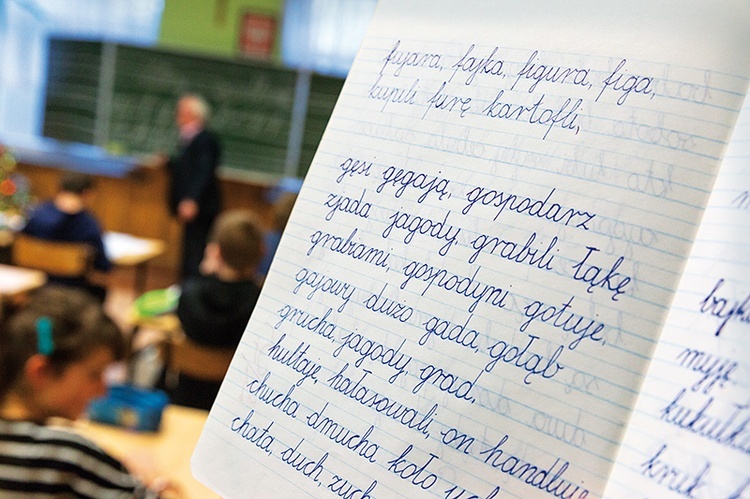 fujara, fajka, figura, figa,
kupili furę kartofli,
gęsi gęgają, gospodarz
zjada jagody, grabili łąkę
grabiami, gospodyni gotuje,
gajowy dużo gada, gołąb
grucha, jagody, grad,
hultaje, hałasowali, on handluje
chucha dmucha koło
chata, duch, zuch
myję
kukułk
kruk